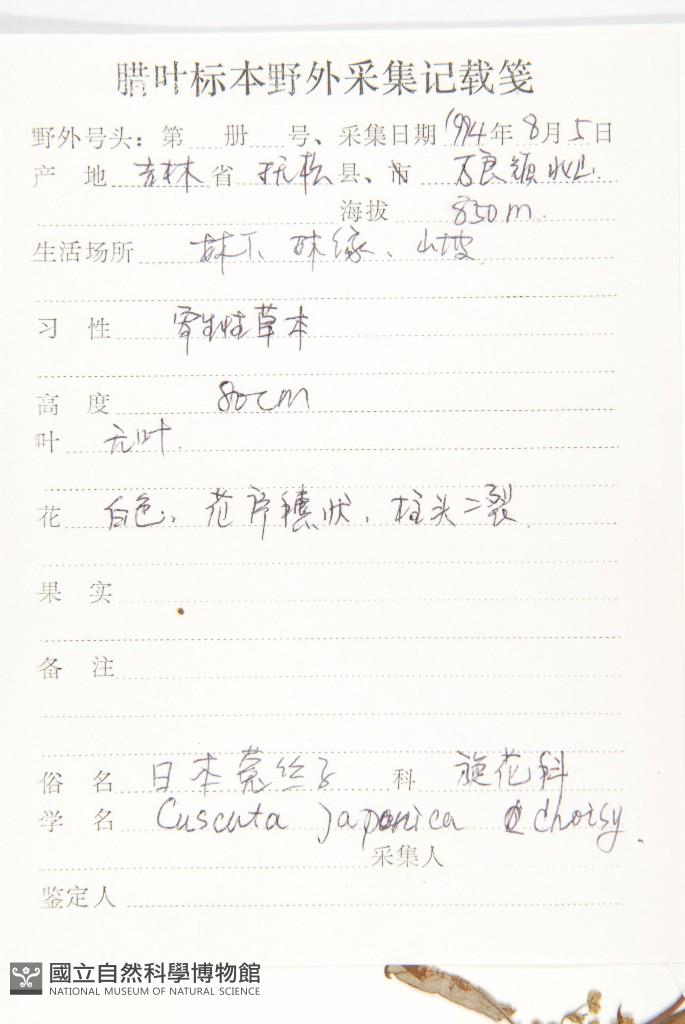 腊叶标本野外采集记载笺
野外号头：第 册 号、采集日期 1994年8月5日
产 地 吉林省 抚松县、市 万良镇 北山
海拔 850m
生活场所 林下、林缘、山坡
习 性 寄生性草本
高 度 80cm
叶 无叶.
花 白色，花序穗状，柱头二裂.
果 实
备 注
俗 名 日本菟丝子 科 旋花科
学 名 Cuscuta japonica Choisy.
采集人
鉴定人
國立自然科學博物館
NATIONAL MUSEUM OF NATURAL SCIENCE